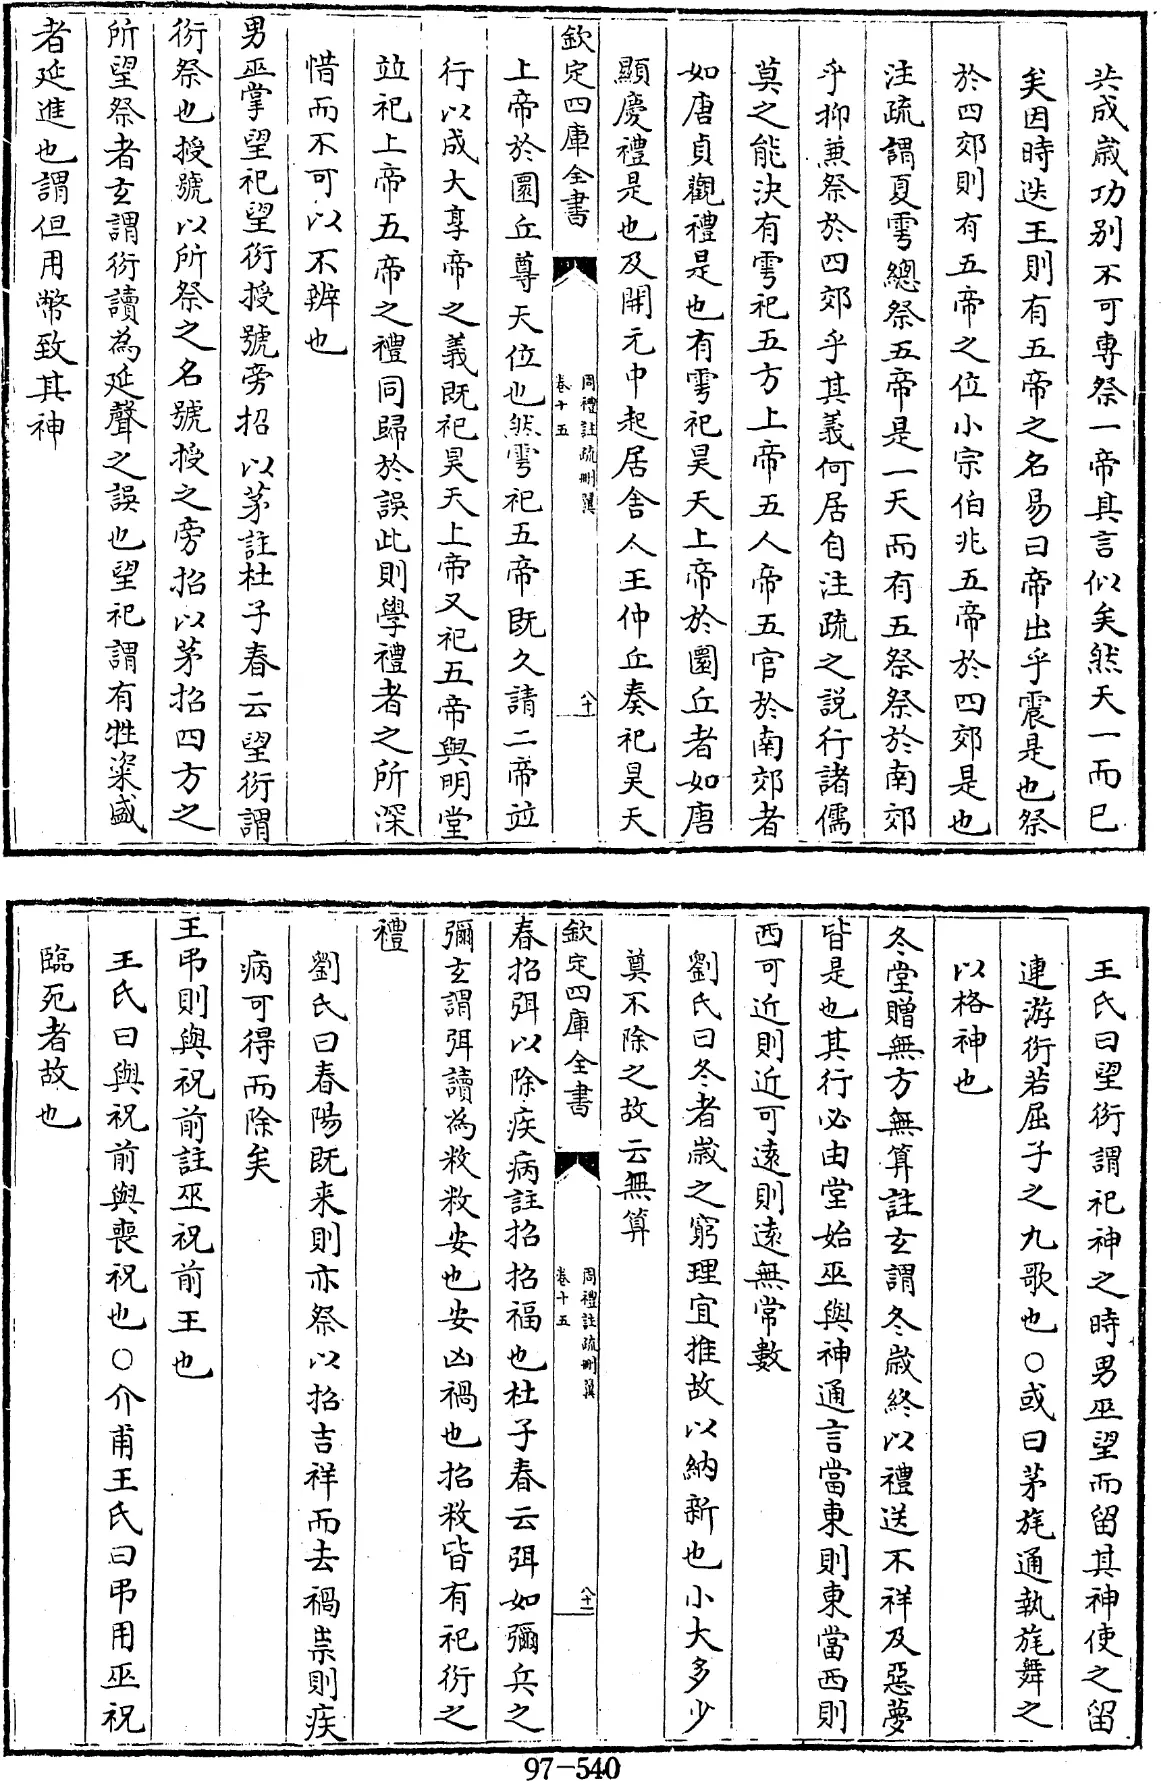 共成歲功别不可專祭一帝其言似矣然天一而已
矣因時迭王則有五帝之名易曰帝出乎震是也祭
於四郊則有五帝之位小宗伯兆五帝於四郊是也
注疏謂夏雩總祭五帝是一天而有五祭祭於南郊
乎抑兼祭於四郊乎其義何居自注疏之説行諸儒
莫之能決有雩祀五方上帝五人帝五官於南郊者
如唐貞觀禮是也有雩祀昊天上帝於圜丘者如唐
顯慶禮是也及開元中起居舍人王仲丘奏祀昊天
欽定四庫全書
周禮註疏刪翼
卷十五
八十
上帝於圜丘尊天位也然雩祀五帝既久請二帝竝
行以成大享帝之義既祀昊天上帝又祀五帝與明堂
竝祀上帝五帝之禮同歸於誤此則學禮者之所深
惜而不可以不辨也
男巫掌望祀望衍授號旁招以茅註杜子春云望衍謂
衍祭也授號以所祭之名號授之旁招以茅招四方之
所望祭者玄謂衍讀為延聲之誤也望祀謂有牲粢盛
者延進也謂但用幣致其神
王氏曰望衍謂祀神之時男巫望而留其神使之留
連游衍若屈子之九歌也○或曰茅旄通執旄舞之
以格神也
冬堂贈無方無算註玄謂冬歲終以禮送不祥及惡夢
皆是也其行必由堂始巫與神通言當東則東當西則
西可近則近可遠則遠無常數
劉氏曰冬者歲之窮理宜推故以納新也小大多少
奠不除之故云無算
欽定四庫全書
周禮註疏刪翼
卷十五
八十一
春招弭以除疾病註招招福也杜子春云弭如彌兵之
彌玄謂弭讀為敉敉安也安凶禍也招敉皆有祀衍之
禮
劉氏曰春陽既来則亦祭以招吉祥而去禍祟則疾
病可得而除矣
王弔則與祝前註巫祝前王也
王氏曰與祝前與喪祝也○介甫王氏曰弔用巫祝
臨死者故也
97-540